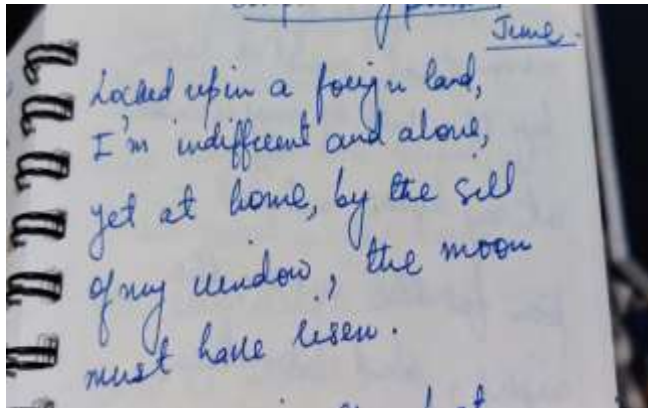 June.
Locked up in a foreign land,
I'm indifferent and alone,
yet at home, by the sill
of my window, the moon
must have risen.